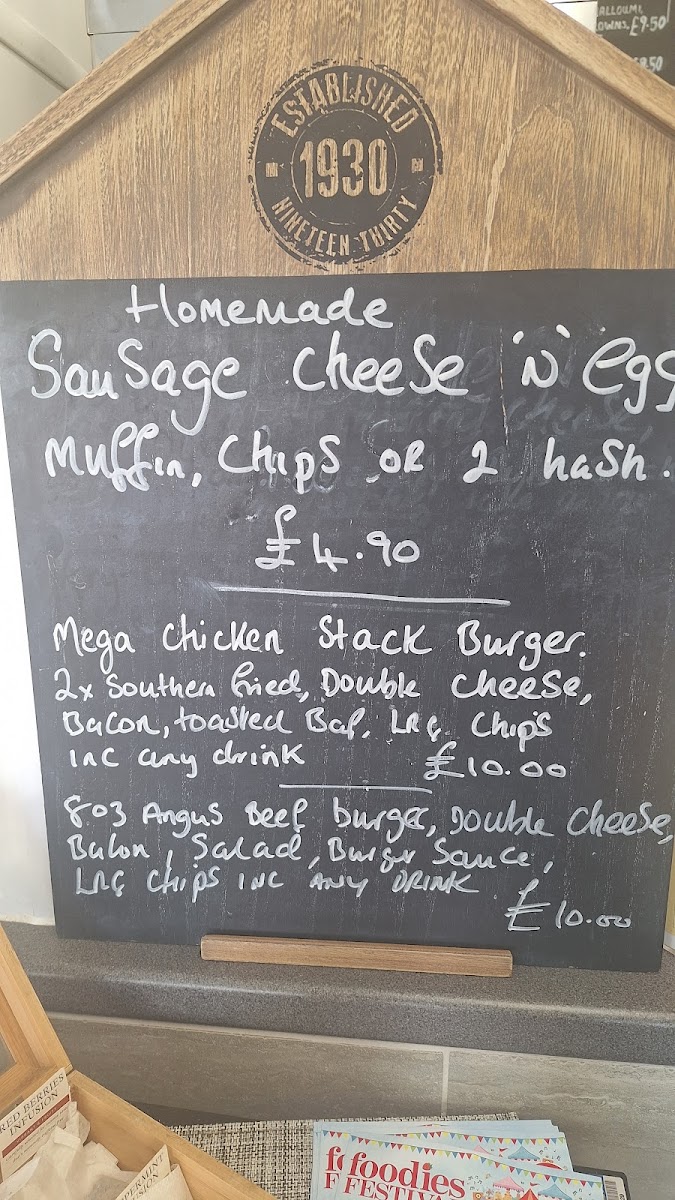 ALLOUMI
OWNS. £9.50
8.50
ESTABLISHED
1930
NINETEEN THIRTY
Homemade
Sausage Cheese 'N' egg
Muffin, Chips OR 2 hash.
£4.90
Mega Chicken Stack Burger.
2x Southern fried, Double Cheese,
Bacon, toasted Bap, LRG Chips
INC any drink £10.00
8oz Angus Beef burger, Double Cheese,
Bacon, Salad, Burger Sauce,
LRG Chips INC ANY DRINK
£10.00
RED BERRIES
INFUSION
PEPPERMINT
INFUSION
foodies
FESTIVAL